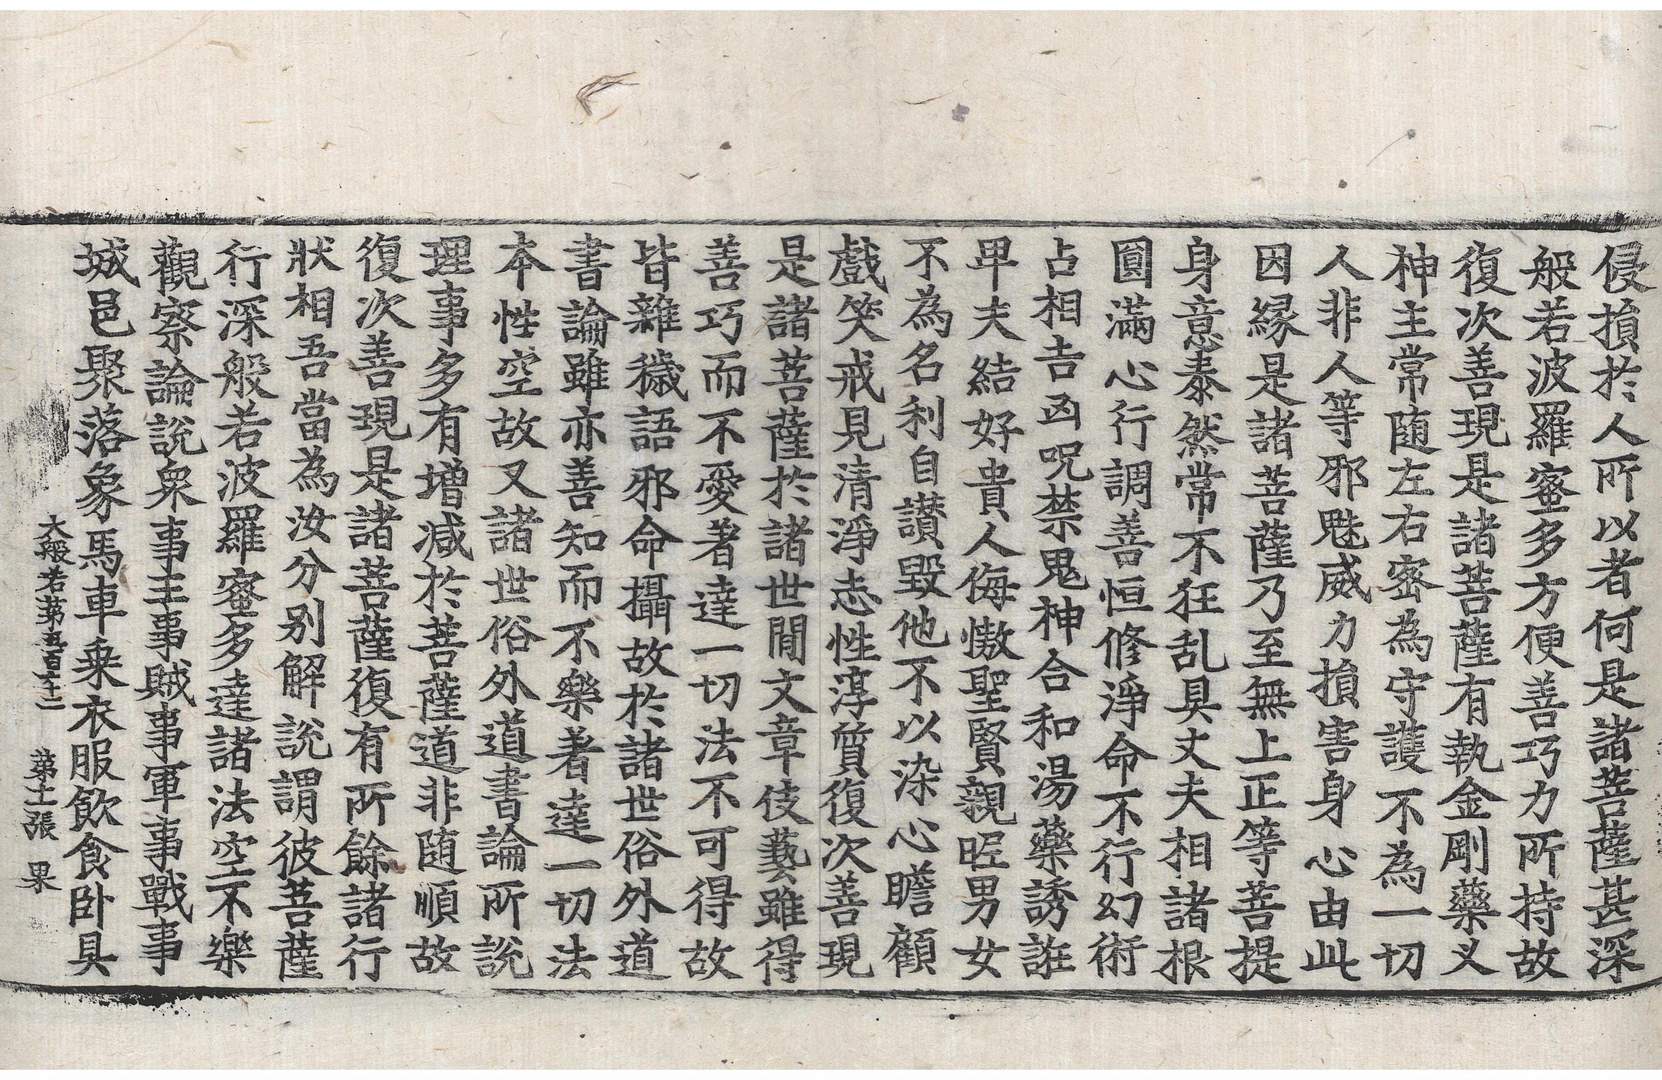 侵損於人所以者何是諸菩薩甚深
般若波羅蜜多方便善巧力所持故
復次善現是諸菩薩有執金剛藥叉
神主常隨左右密為守護不為一切
人非人等邪魅威力損害身心由此
因緣是諸菩薩乃至無上正等菩提
身意泰然常不狂乱具丈夫相諸根
圓滿心行調善恒修淨命不行幻術
占相吉凶呪禁鬼神合和湯藥誘誑
卑夫結好貴人侮慠聖賢親昵男女
不為名利自讃毀他不以染心瞻顧
戲笑戒見清淨志性淳質復次善現
是諸菩薩於諸世閒文章伎藝雖得
善巧而不愛著達一切法不可得故
皆雜穢語邪命攝故於諸世俗外道
書論雖亦善知而不樂著達一切法
本性空故又諸世俗外道書論所說
理事多有增減於菩薩道非随順故
復次善現是諸菩薩復有所餘諸行
狀相吾當為汝分別解說謂彼菩薩
行深般若波羅蜜多達諸法空不樂
觀察論說衆事王事賊事軍事戰事
城邑聚落象馬車乗衣服飲食卧具
大般若第五百六十二 第十二張 果